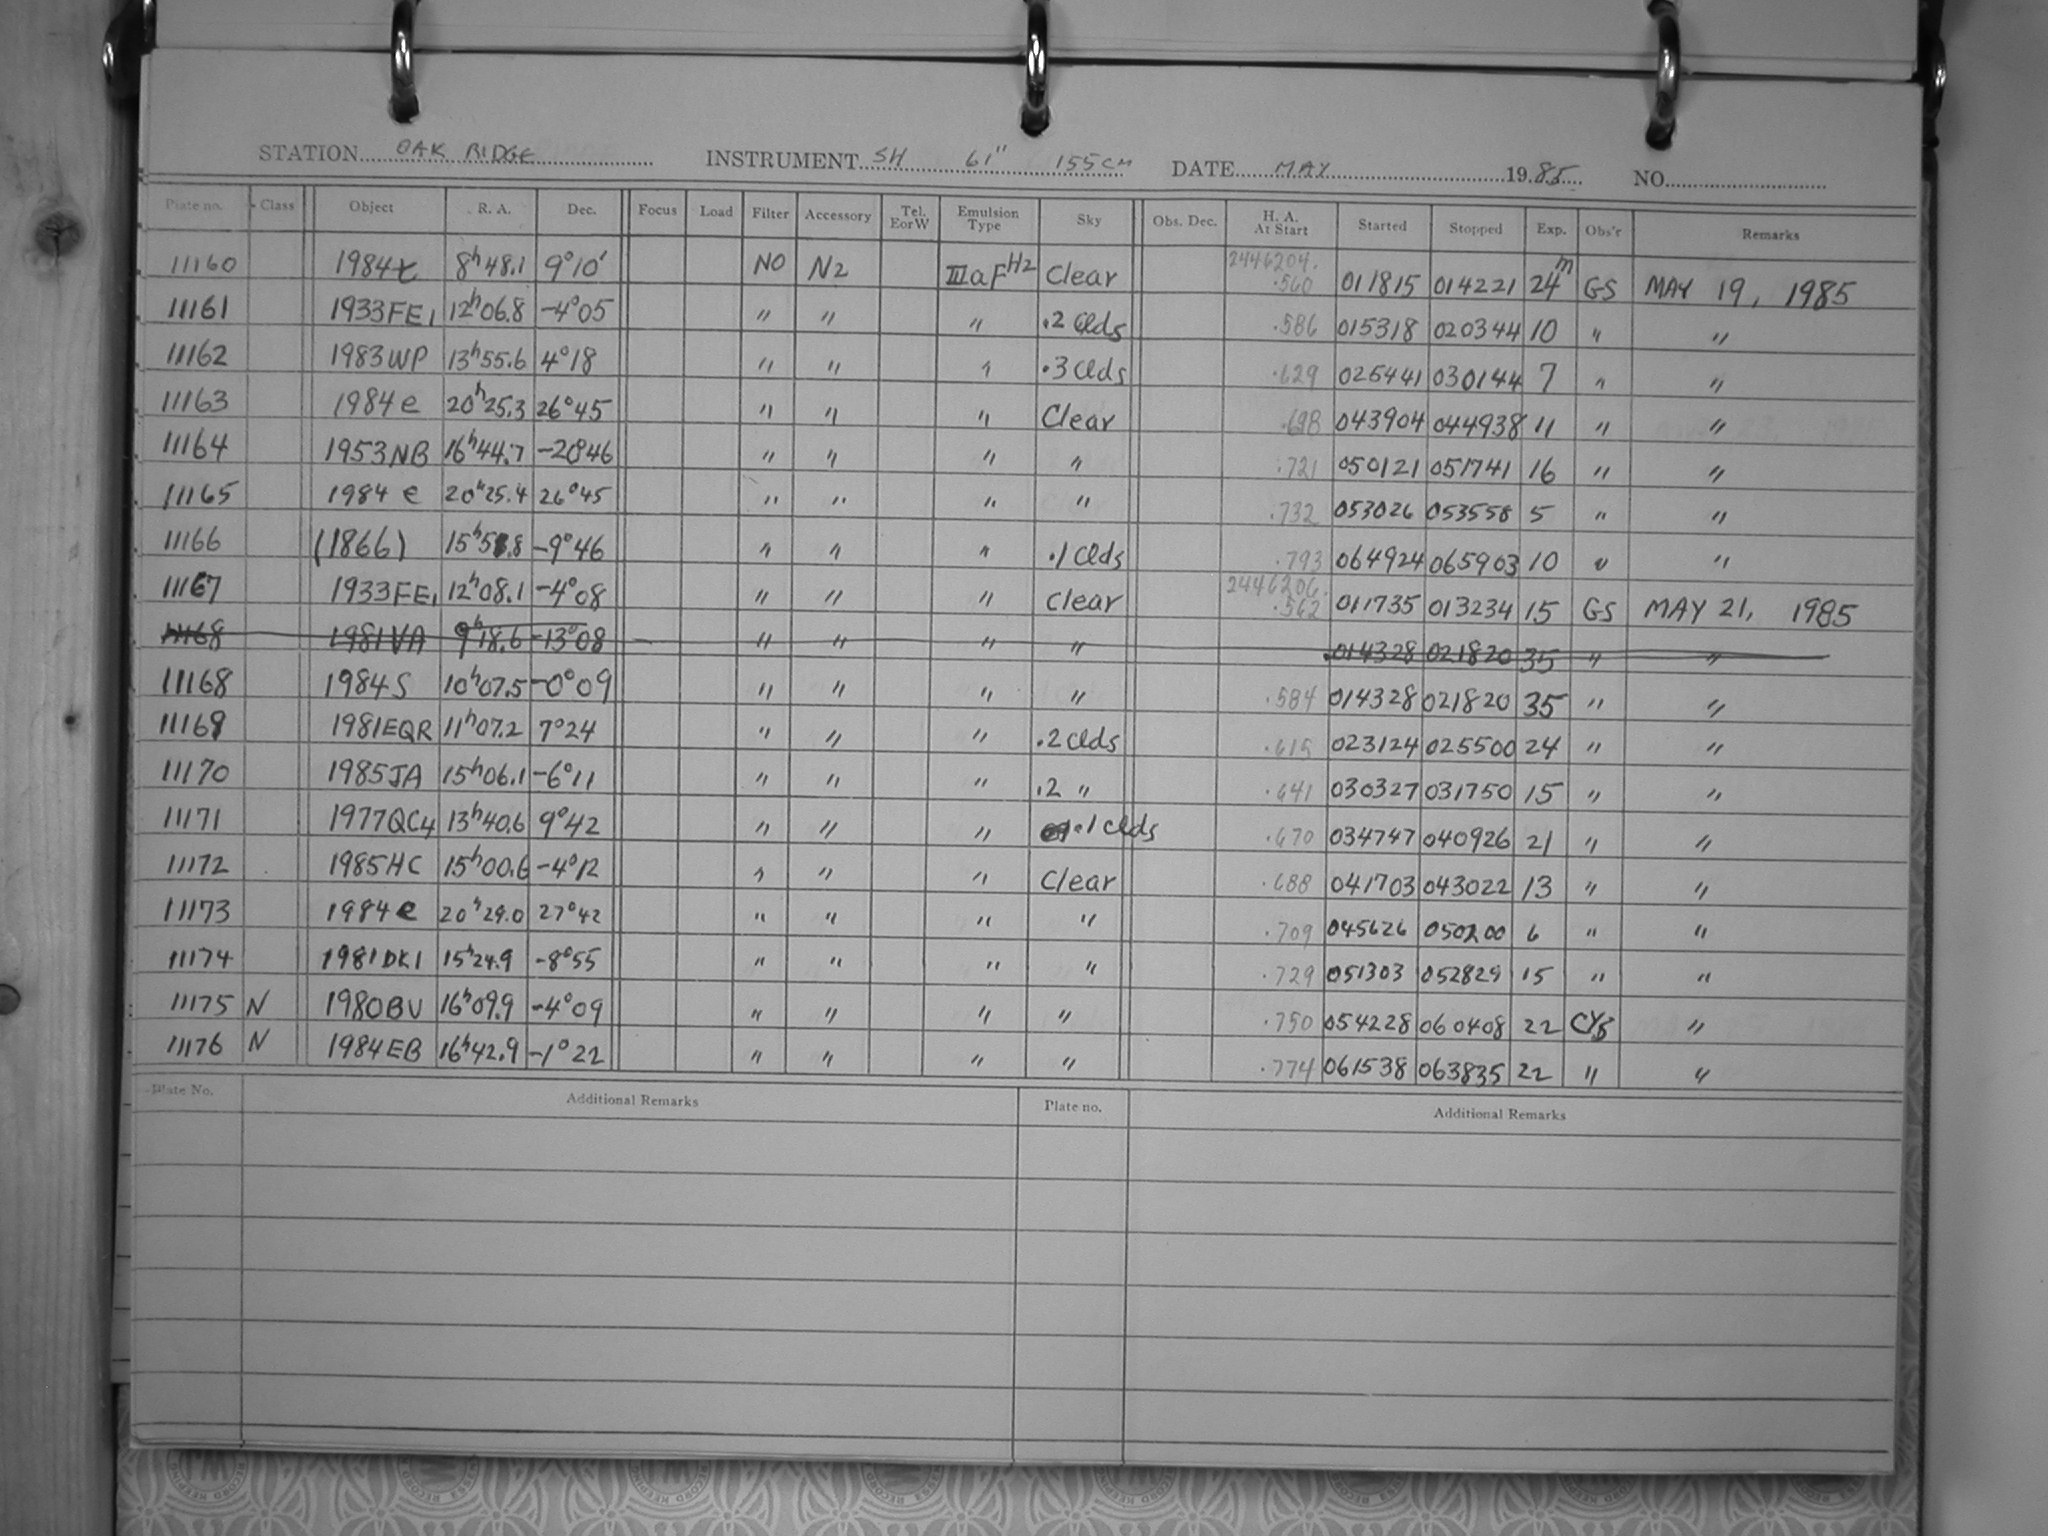 STATION OAK RIDGE INSTRUMENT SH 61" 155cm DATE MAY 1985 NO.
Plate no. Class Object R. A. Dec. Focus Load Filter Accessory Tel. EorW Emulsion Type Sky Obs. Dec. H. A. At Start Started Stopped Exp. Obs'r Remarks
11160 1984t 8h48.1 9°10' NO N2 IIIaF H2 Clear 2446204. .560 011815 014221 24m GS MAY 19, 1985
11161 1933FE1 12h06.8 -4°05 " " " .2 Clds .586 015318 020344 10 " "
11162 1983WP 13h55.6 4°18 " " " .3 Clds .629 025441 030144 7 " "
11163 1984e 20h25.3 26°45 " " " Clear .698 043904 044938 11 " "
11164 1953NB 16h44.7 -20°46 " " " " .721 050121 051741 16 " "
11165 1984e 20h25.4 26°45 " " " " .732 053026 053558 5 " "
11166 (1866) -9°46 " " " .1 Clds .793 064924 065903 10 " "
11167 1933FE1 12h08.1 -4°08 " " " Clear 2446206. .562 011735 013234 15 GS MAY 21, 1985
11168 1981VA 9h18.6 -13°08 " " " " 014328 021820 35 " "
11168 1984S 10h07.5 -0°09 " " " " .584 014328 021820 35 " "
11169 1981EQR 11h07.2 7°24 " " " .2 Clds .615 023124 025500 24 " "
11170 1985JA 15h06.1 -6°11 " " " .2 " .641 030327 031750 15 " "
11171 1977QC4 13h40.6 9°42 " " " .1 Clds .670 034747 040926 21 " "
11172 1985HC 15h00.6 -4°12 " " " Clear .688 041703 043022 13 " "
11173 1984e 20h29.0 27°42 " " " " .709 045626 050200 6 " "
11174 1981DK1 15h24.9 -8°55 " " " " .729 051303 052829 15 " "
11175 N 1980BU 16h09.9 -4°09 " " " " .750 054228 060408 22 CYS "
11176 N 1984EB 16h42.9 -1°22 " " " " .774 061538 063835 22 " "
Plate No. Additional Remarks Plate no. Additional Remarks